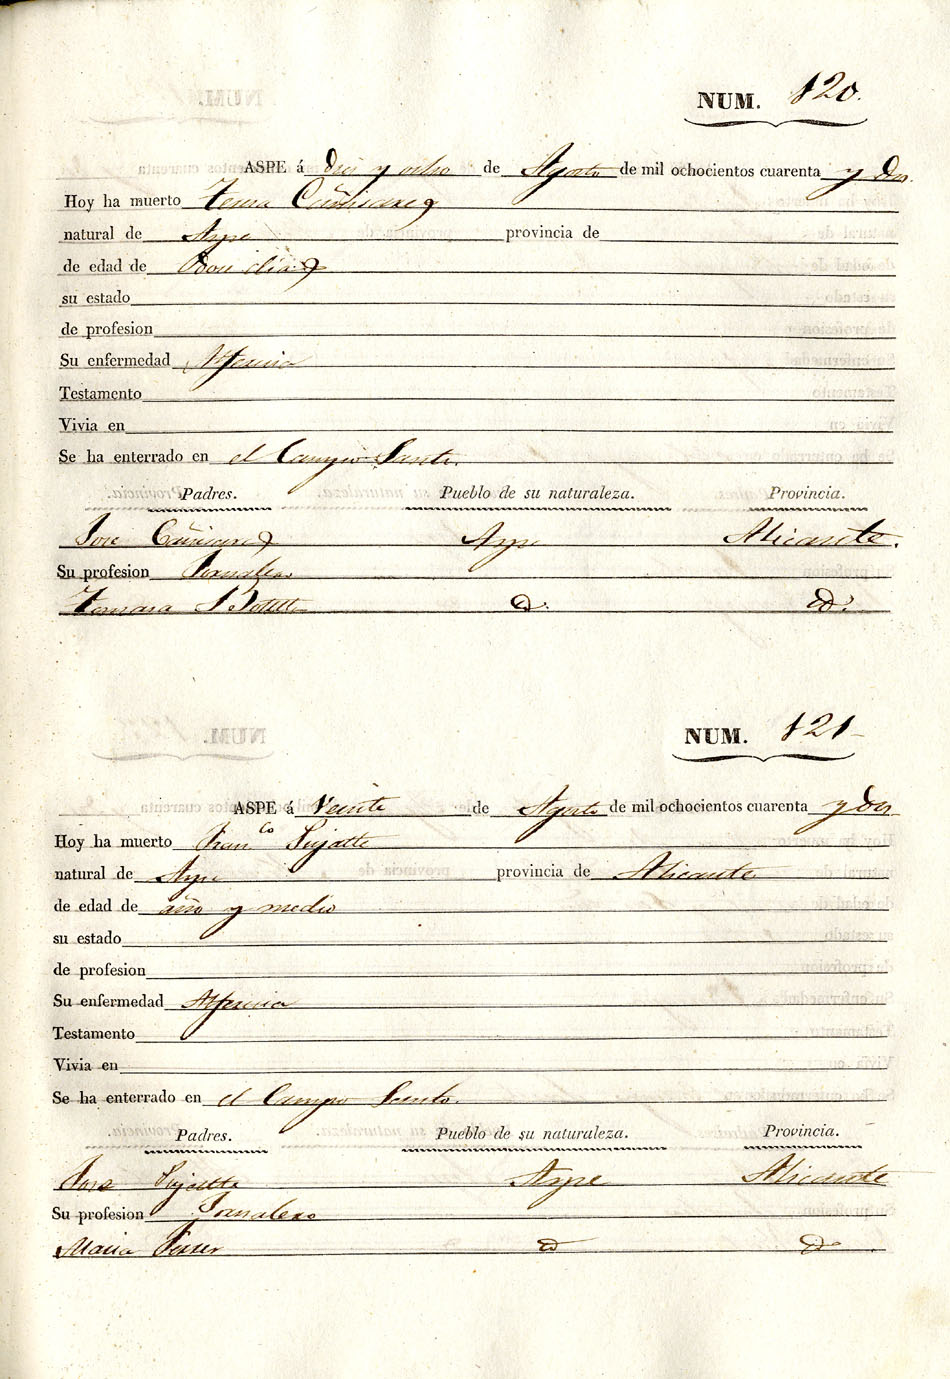 NUM. 120.
ASPE á diez y ocho de Agosto de mil ochocientos cuarenta y dos.
Hoy ha muerto Teresa Cañizares
natural de Aspe provincia de
de edad de Doce dias
su estado
de profesion
Su enfermedad Alferecia
Testamento
Vivia en
Se ha enterrado en el Campo Santo.
Padres. Pueblo de su naturaleza. Provincia.
Jose Cañizares Aspe Alicante.
Su profesion Jornalero
Tomasa Botella id. id.
NUM. 121
ASPE á Veinte de Agosto de mil ochocientos cuarenta y dos
Hoy ha muerto Franco
natural de Aspe provincia de Alicante
de edad de año y medio
su estado
de profesion
Su enfermedad Alferecia
Testamento
Vivia en
Se ha enterrado en el Campo Santo.
Padres. Pueblo de su naturaleza. Provincia.
Jose Aspe Alicante
Su profesion Jornalero
Maria Ferrer id id